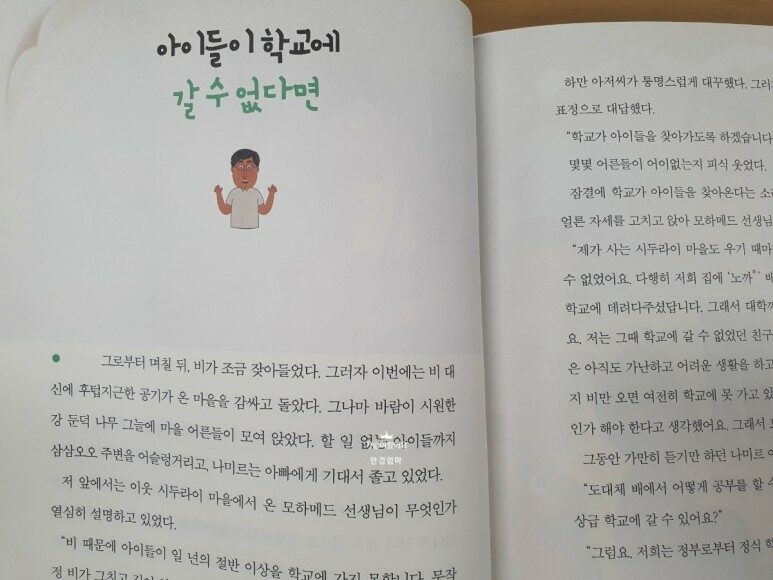 아이들이 학교에
갈 수 없다면
그로부터 며칠 뒤, 비가 조금 잦아들었다. 그러자 이번에는 비 대
신에 후텁지근한 공기가 온 마을을 감싸고 돌았다. 그나마 바람이 시원한
강 둔덕 나무 그늘에 마을 어른들이 모여 앉았다. 할 일 없는 아이들까지
삼삼오오 주변을 어슬렁거리고, 나미르는 아빠에게 기대서 졸고 있었다.
저 앞에서는 이웃 시두라이 마을에서 온 모하메드 선생님이 무엇인가
열심히 설명하고 있었다.
“비 때문에 아이들이 일 년의 절반 이상을 학교에 가지 못합니다. 무작
정 비가 그치고
안경엄마
하만 아저씨가 퉁명스럽게 대꾸했다.
표정으로 대답했다.
“학교가 아이들을 찾아가도록 하겠습니다
몇몇 어른들이 어이없는지 피식 웃었다.
잠결에 학교가 아이들을 찾아온다는
얼른 자세를 고치고 앉아 모하메드 선생님
“제가 사는 시두라이 마을도 우기 때마
수 없었어요. 다행히 저희 집에 ‘노까*’
학교에 데려다주셨답니다. 그래서
요. 저는 그때 학교에 갈 수 없었던 친구
은 아직도 가난하고 어려운 생활을 하고
지 비만 오면 여전히 학교에 못 가고
인가 해야 한다고 생각했어요. 그래서
그동안 가만히 듣기만 하던 나미르
“도대체 배에서 어떻게 공부를 할
상급 학교에 갈 수 있어요?”
“그럼요. 저희는 정부로부터 정식